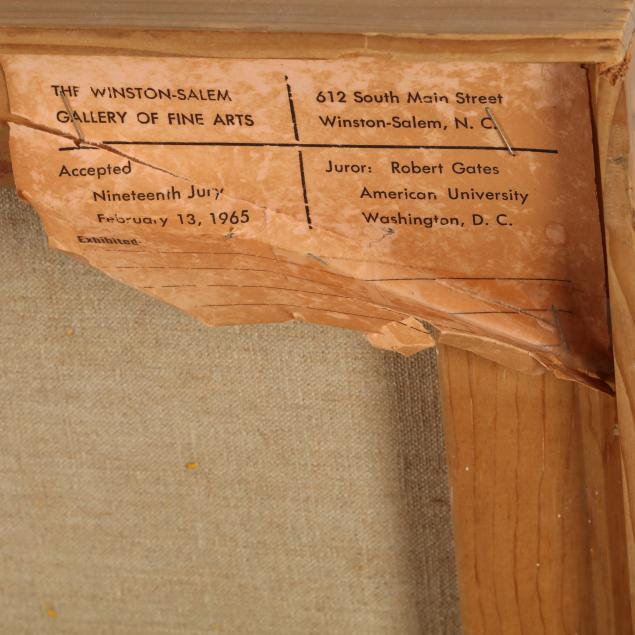 THE WINSTON-SALEM
GALLERY OF FINE ARTS
612 South Main Street
Winston-Salem, N. C.
Accepted
Nineteenth Jury
February 13, 1965
Exhibited:
Juror: Robert Gates
American University
Washington, D. C.